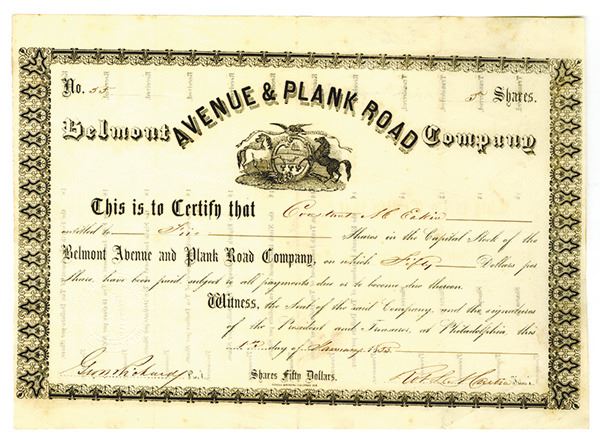 No. 55
5 Shares.
Belmont AVENUE & PLANK ROAD Company
This is to Certify that Constant M Eakin
entitled to Five Shares in the Capital Stock of the
Belmont Avenue and Plank Road Company, on which Fifty Dollars per
Share, have been paid, subject to all payments due or to become due thereon.
Witness, the Seal of the said Company, and the signatures
of the President and Treasurer, at Philadelphia, this
day of January 1855
Pres't.
Shares Fifty Dollars.